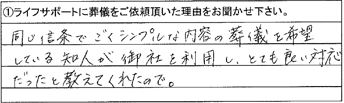 ①ライフサポートに葬儀をご依頼頂いた理由をお聞かせ下さい。
同じ信条でごくシンプルな内容の葬儀を希望
している知人が御社を利用し、とても良い対応
だったと教えてくれたので。